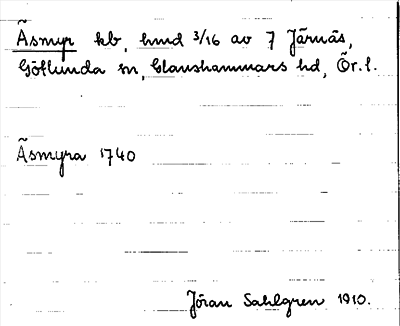 Äsmyr kb, hmd 3/16 av 7 Järnäs,
Götlunda sn, Glanshammars hd, Ör.l.
Äsmyra 1740
Jöran Sahlgren 1910.